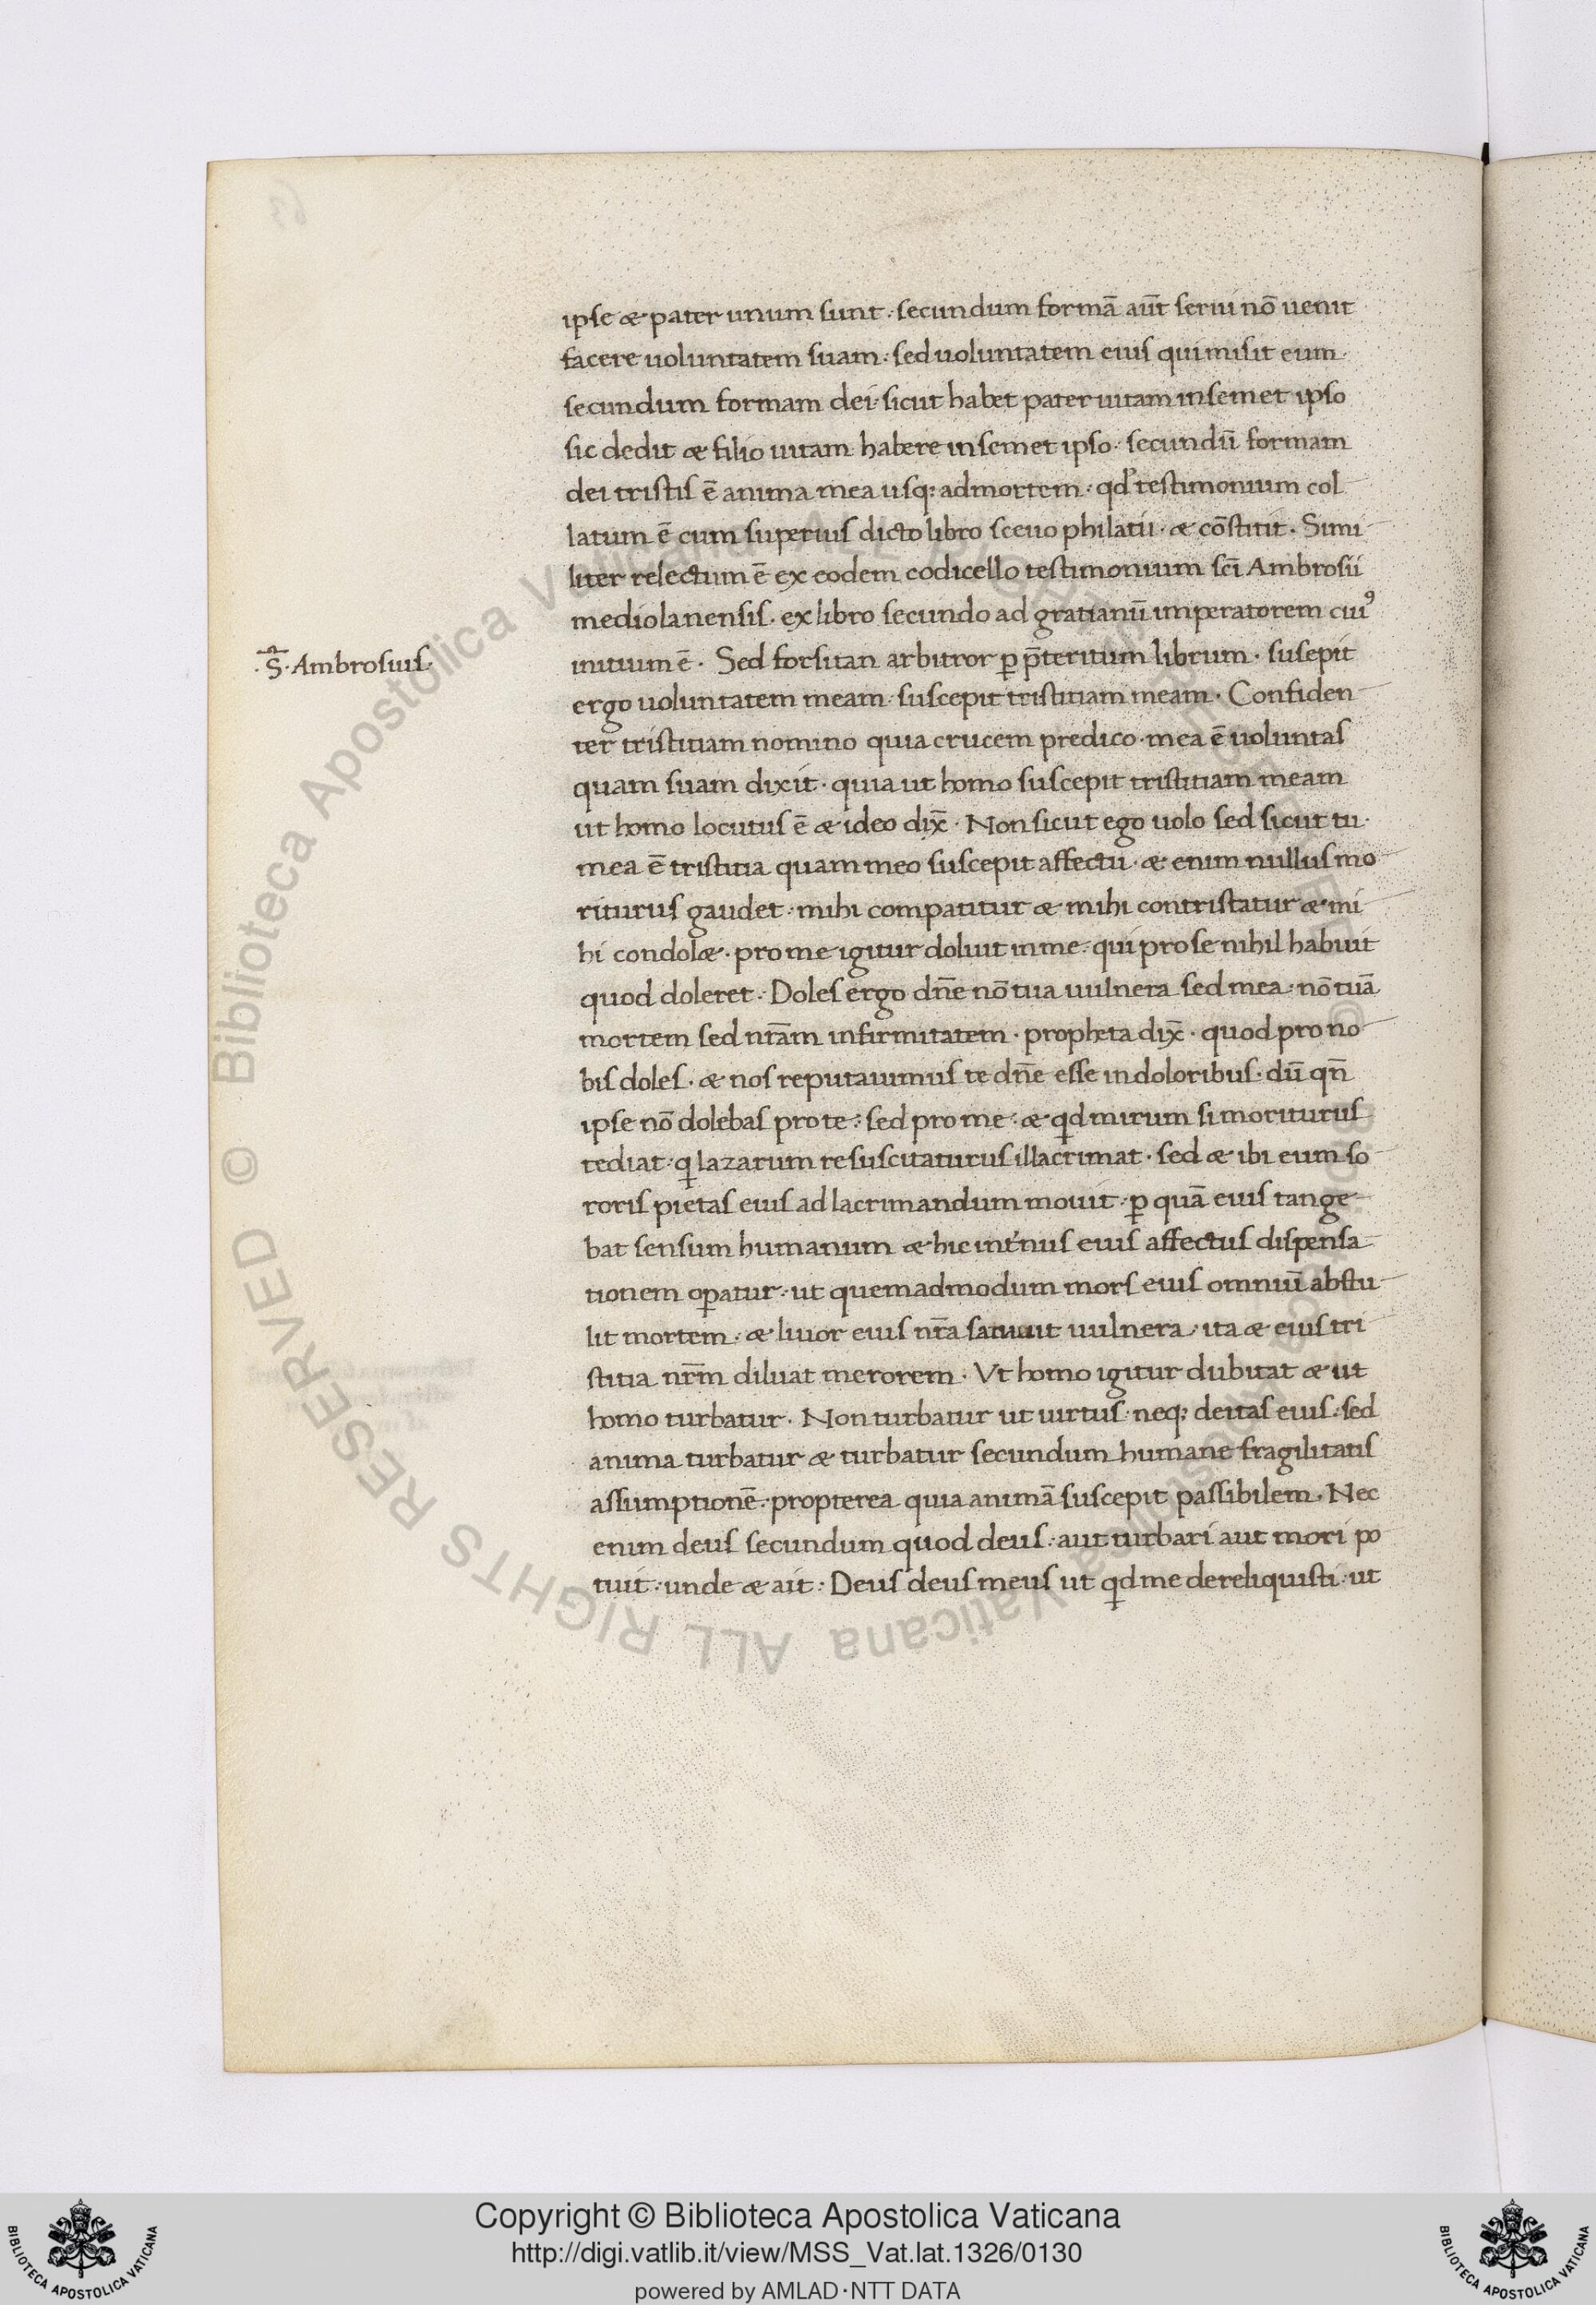 ipse æ pater unum sunt · secundum formā aūt serui nō uenit
facere uoluntatem suam · sed uoluntatem eius qui misit eum
secundum formam dei · sicut habet pater uitam in semet ipso
sic dedit æ filio uitam habere in semet ipso · secundū formam
dei tristis ē anima mea usq; ad mortem · qd testimonium col
latum ē cum superius dicto libro sceuo philatii · æ cōstitit · Simi
liter relectum ē ex eodem codicello testimonium sc̄i Ambrosii
mediolanensis · ex libro secundo ad gratianū imperatorem cui⁹
·S̄· Ambrosius·
initium ē · Sed forsitan arbitror ꝑ p̄teritum librum · susepit
ergo uoluntatem meam · suscepit tristitiam meam · Confiden
ter tristitiam nomino quia crucem predico · mea ē uoluntas
quam suam dixit · quia ut homo suscepit tristitiam meam
ut homo locutus ē æ ideo dix̄ · Non sicut ego uolo sed sicut tu ·
mea ē tristitia quam meo suscepit affectu · æ enim nullus mo
riturus gaudet · mihi compatitur æ mihi contristatur æ mi
hi condolæ · pro me igitur doluit in me · qui pro se nihil habuit
quod doleret · Doles ergo dn̄e nō tua uulnera sed mea · nō tuā
mortem sed nr̄am infirmitatem · propheta dix̄ · quod pro no
bis doles · æ nos reputauimus te dn̄e esse in doloribus · dū qn̄
ipse nō dolebas pro te · sed pro me · æ qd mirum si moriturus
tediat · q lazarum resuscitaturus illacrimat · sed æ ibi eum so
roris pietas eius ad lacrimandum mouit · ꝑ quā eius tange
bat sensum humanum æ hic int'nus eius affectus dispensa
tionem oꝑatur · ut quemadmodum mors eius omniū abstu
lit mortem · æ liuor eius nr̄a uulnera · ita æ eius tri
stitia nr̄m diluat merorem · Vt homo igitur dubitat æ ut
homo turbatur · Non turbatur ut uirtus · neq; deitas eius · sed
anima turbatur æ turbatur secundum humane fragilitatis
assumptionē · propterea quia animā suscepit passibilem · Nec
enim deus secundum quod deus · aut turbari aut mori po
tuit · unde æ ait · Deus deus meus ut qd me dereliquisti · ut
© Biblioteca Apostolica Vaticana ALL RIGHTS RESERVED
Copyright © Biblioteca Apostolica Vaticana
http://digi.vatlib.it/view/MSS_Vat.lat.1326/0130
powered by AMLAD·NTT DATA
BIBLIOTECA APOSTOLICA VATICANA
BIBLIOTECA APOSTOLICA VATICANA